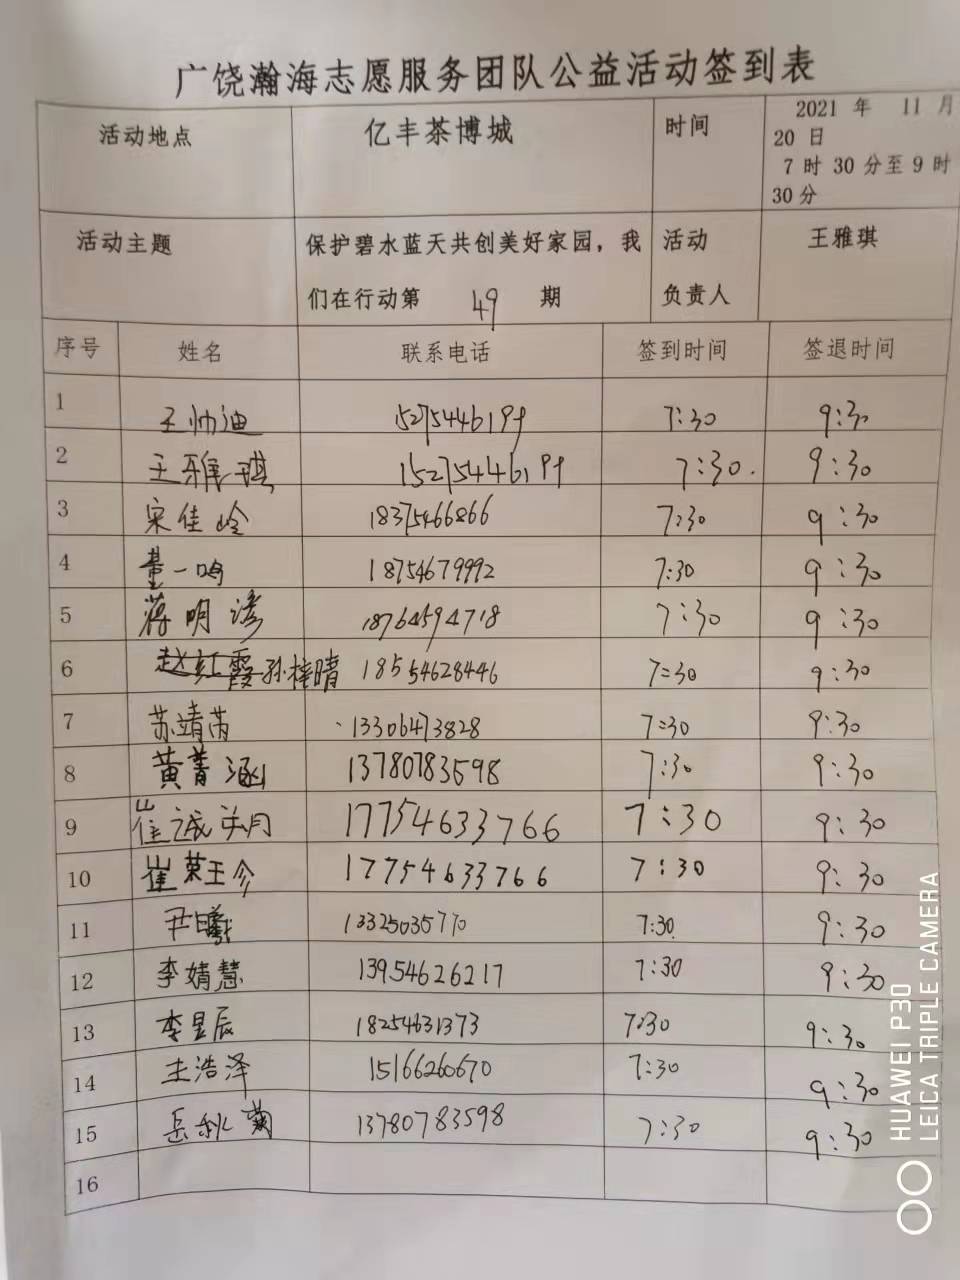 广饶瀚海志愿服务团队公益活动签到表
活动地点 亿丰茶博城 时间 2021 年 11 月
20 日
7 时 30 分至 9 时
30 分
活动主题 保护碧水蓝天共创美好家园，我 活动 王雅琪
们在行动第 49 期 负责人
序号 姓名 联系电话 签到时间 签退时间
1 王帅迪 15275446199 7:30 9:30
2 王雅琪 15275446199 7:30. 9:30
3 宋佳岭 18375466866 7:30 9:30
4 董一鸣 18754679992 7:30 9:30
5 蒋明 18764594718 7:30 9:30
6 孙桂晴 18554628446 7:30 9:30
7 苏靖芮 13306473828 7:30 9:30
8 黄菁涵 13780783598 7:30 9:30
9 崔诚 17754633766 7:30 9:30
10 崔荣 17754633766 7:30 9:30
11 尹曦 13325035770 7:30 9:30
12 李婧慧 13954626217 7:30 9:30
13 李昱辰 18254631373 7:30 9:30
14 王浩泽 15166260670 7:30 9:30
15 岳秋菊 13780783598 7:30 9:30
16
HUAWEI P30
LEICA TRIPLE CAMERA